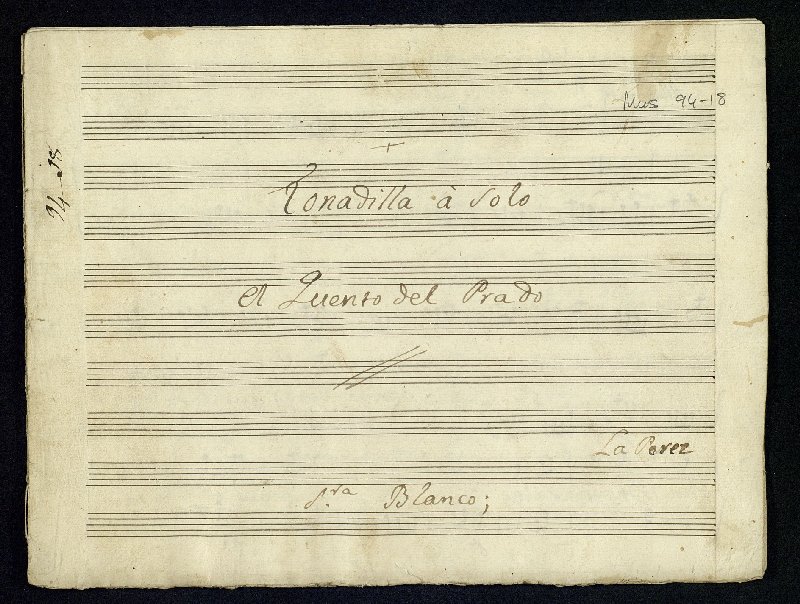 Mus 94-18
94-18
+
Tonadilla à Solo
el Quento del Prado
La Perez
S.ra Blanco;